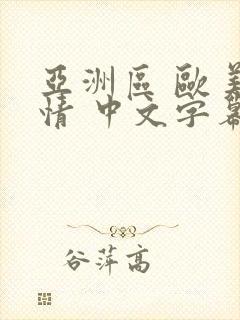 亞洲區 歐美
情 中文字幕
谷萍高